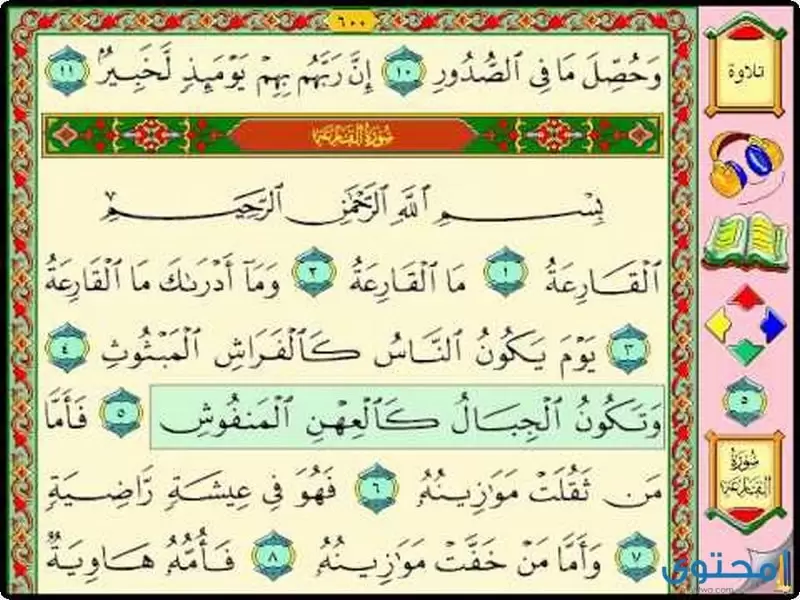 ٦٠٠
وَحُصِّلَ مَا فِي ٱلصُّدُورِ ١٠ إِنَّ رَبَّهُم بِهِمْ يَوْمَئِذٍ لَّخَبِيرٌۢ ١١
سُورَةُ القَارِعَةِ
بِسْمِ ٱللَّهِ ٱلرَّحْمَٰنِ ٱلرَّحِيمِ
ٱلْقَارِعَةُ ١ مَا ٱلْقَارِعَةُ ٢ وَمَآ أَدْرَىٰكَ مَا ٱلْقَارِعَةُ
٣ يَوْمَ يَكُونُ ٱلنَّاسُ كَٱلْفَرَاشِ ٱلْمَبْثُوثِ ٤
وَتَكُونُ ٱلْجِبَالُ كَٱلْعِهْنِ ٱلْمَنفُوشِ ٥ فَأَمَّا
مَن ثَقُلَتْ مَوَٰزِينُهُۥ ٦ فَهُوَ فِي عِيشَةٍ رَّاضِيَةٍ
٧ وَأَمَّا مَنْ خَفَّتْ مَوَٰزِينُهُۥ ٨ فَأُمُّهُۥ هَاوِيَةٌ
تلاوة
٥
سُورَةُ القَارِعَةِ
محتوى